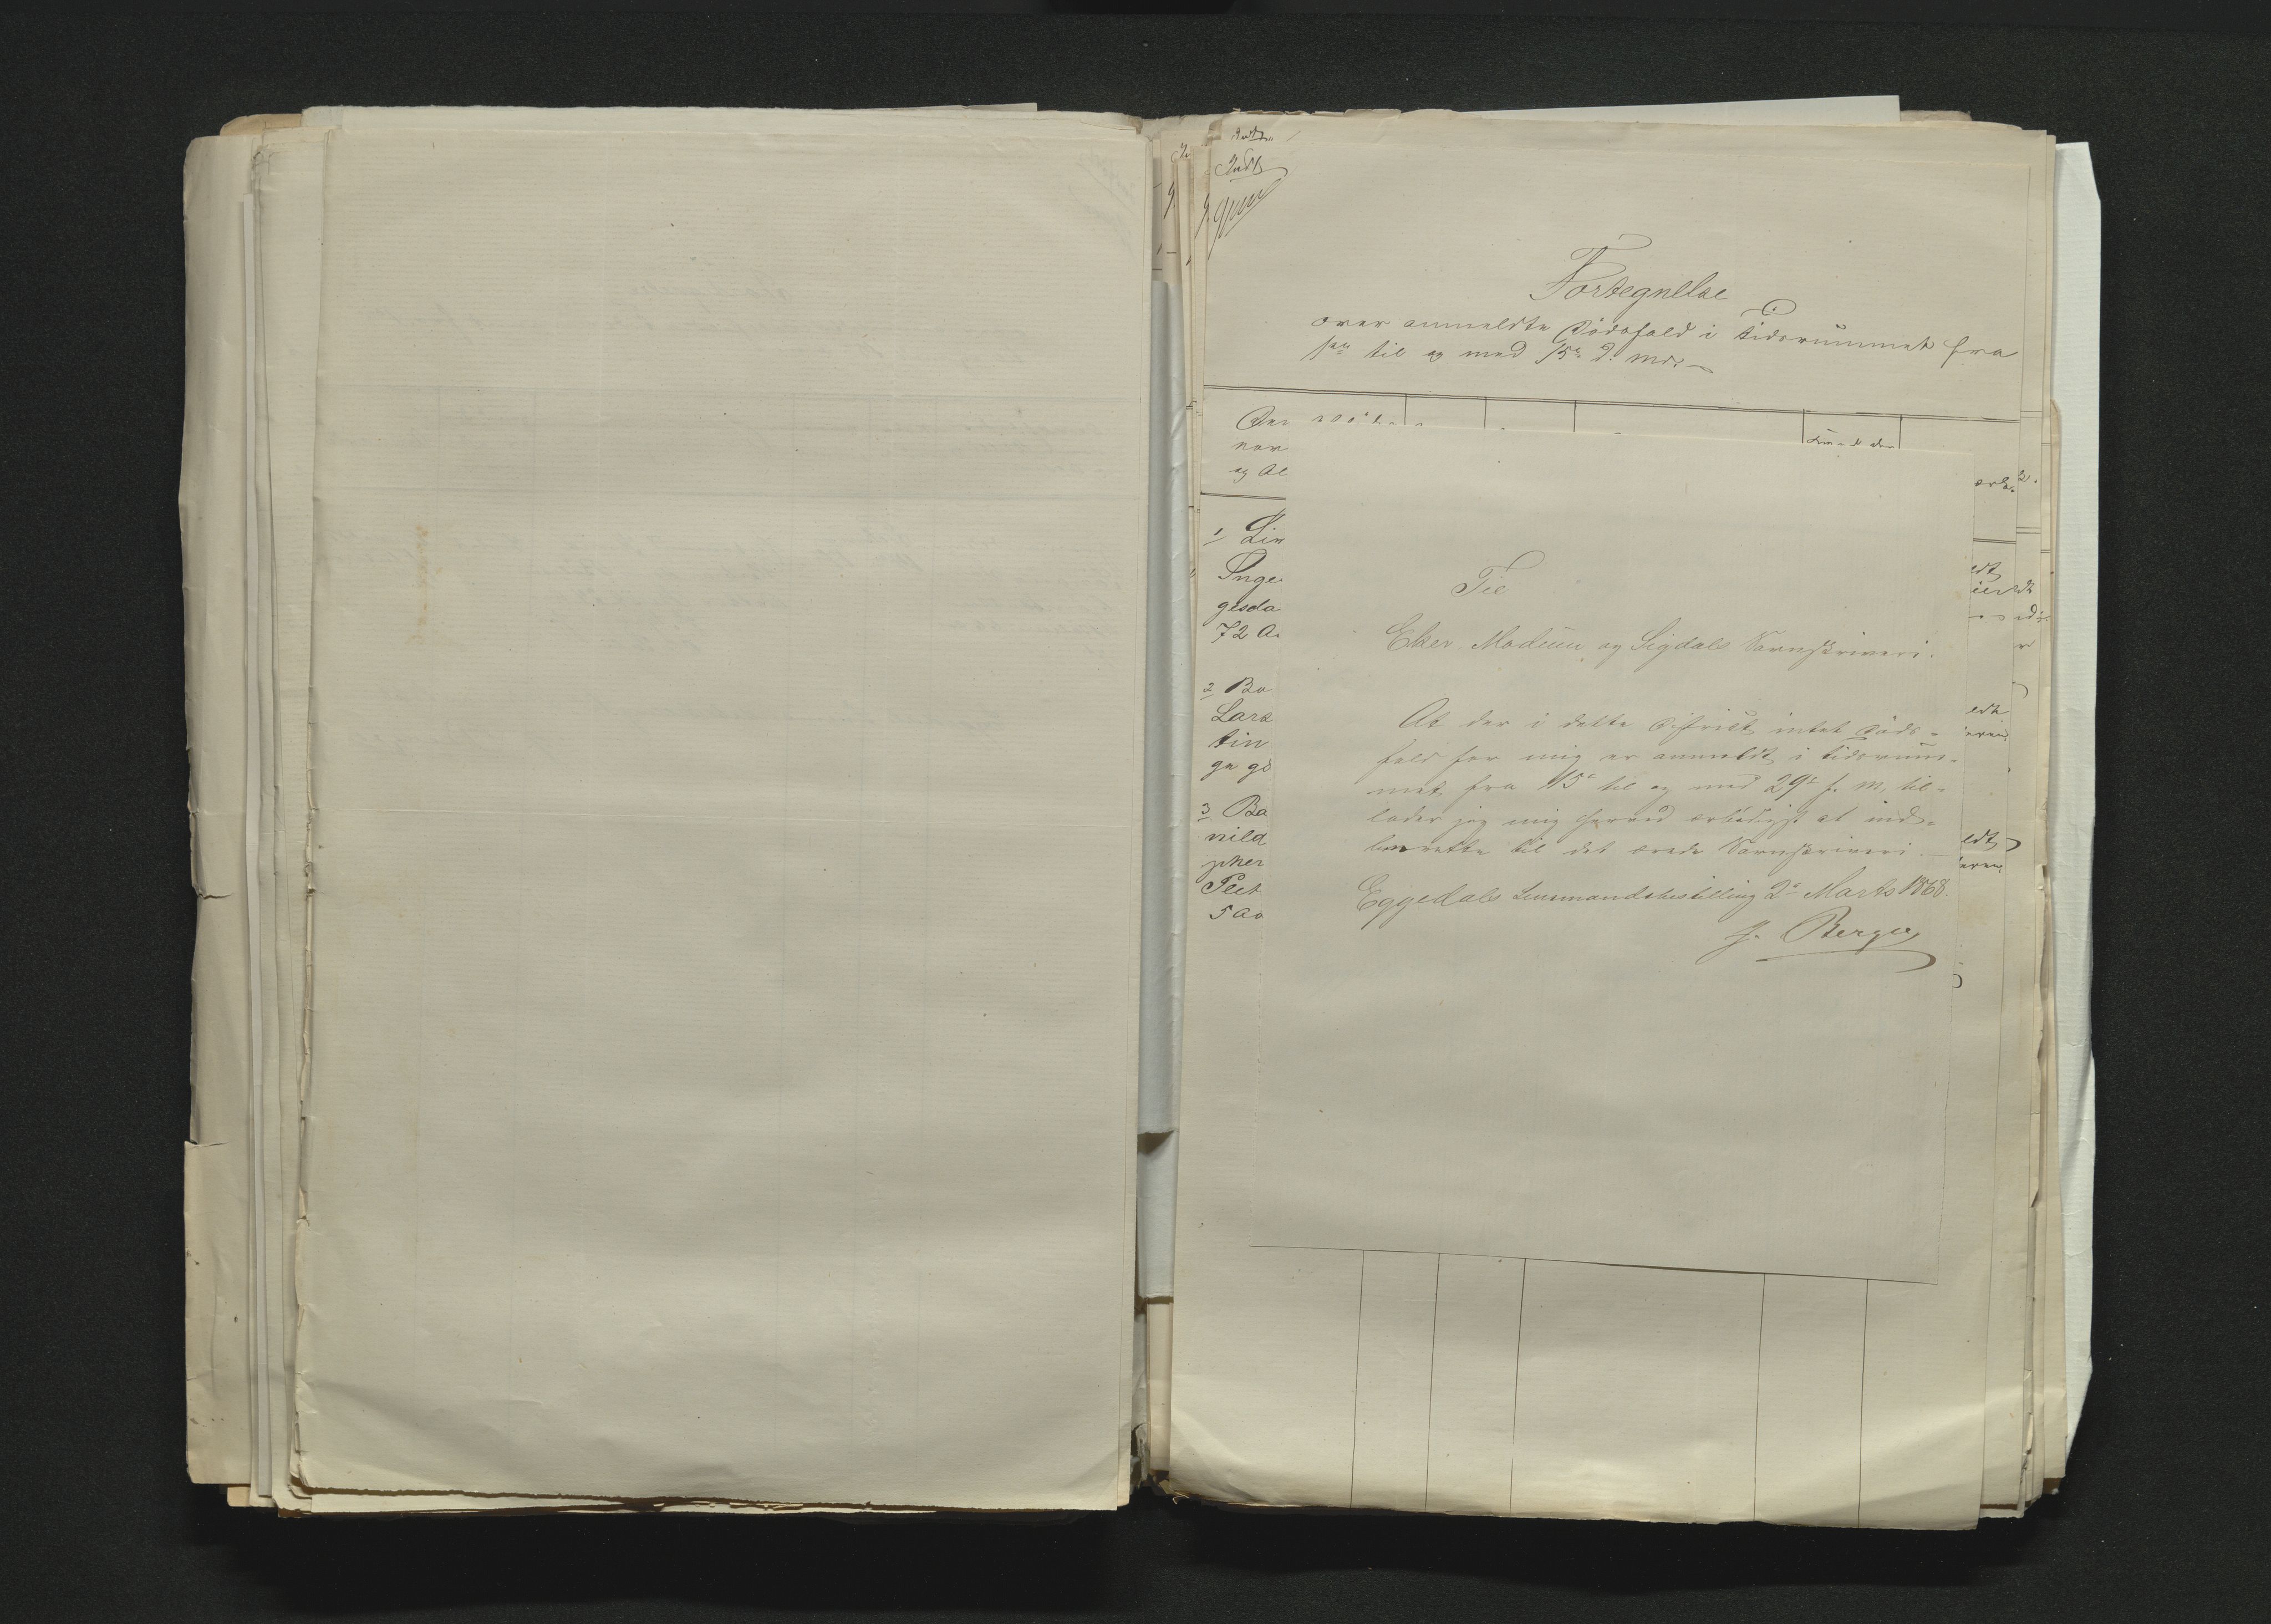 Fortegnelse
over anmeldte Dødsfald i Tidsrummet fra
1ste til og med 15de d. Md.
og Al
1 Lin
Inge
gesda
72 A
2 Ba
Lars
tin
ge gi
3 Ba
nild
pher
Peet
5 Aa
Til
Eker, Modum og Sigdals Sorenskriveri.
At der i dette Distrikt intet Døds-
fald for mig er anmeldt i Tidsrum-
met fra 15de til og med 29de f. M. til-
lader jeg mig herved ærbødigst at ind-
berette til det ærede Sorenskriveri.
Eggedals Lensmandsbestilling 2den Marts 1868.
J. Berger